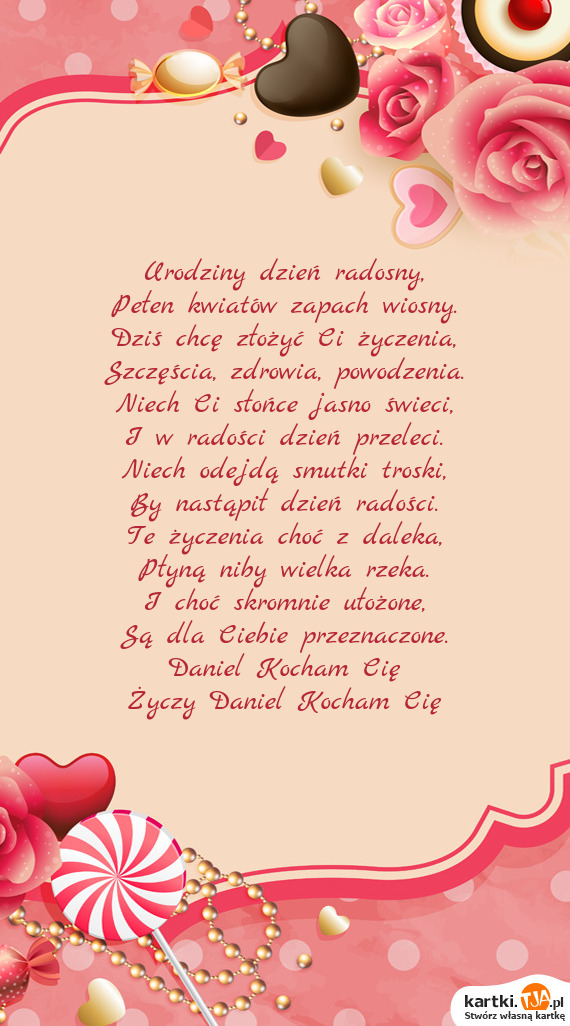 Urodziny dzień radosny,
Pełen kwiatów zapach wiosny.
Dziś chcę złożyć Ci życzenia,
Szczęścia, zdrowia, powodzenia.
Niech Ci słońce jasno świeci,
I w radości dzień przeleci.
Niech odejdą smutki troski,
By nastąpił dzień radości.
Te życzenia choć z daleka,
Płyną niby wielka rzeka.
I choć skromnie ułożone,
Są dla Ciebie przeznaczone.
Daniel Kocham Cię
Życzy Daniel Kocham Cię
kartki.TJA.pl
Stwórz własną kartkę